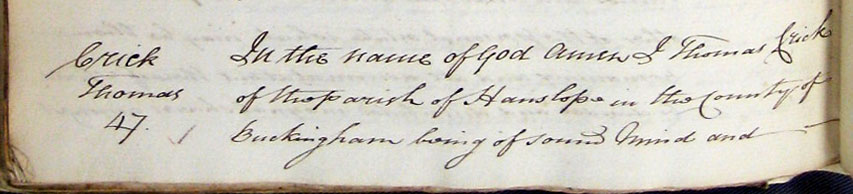 Crick
Thomas
47.
In the name of God Amen I Thomas Crick
of the parish of Hanslope in the County of
Buckingham being of sound Mind and